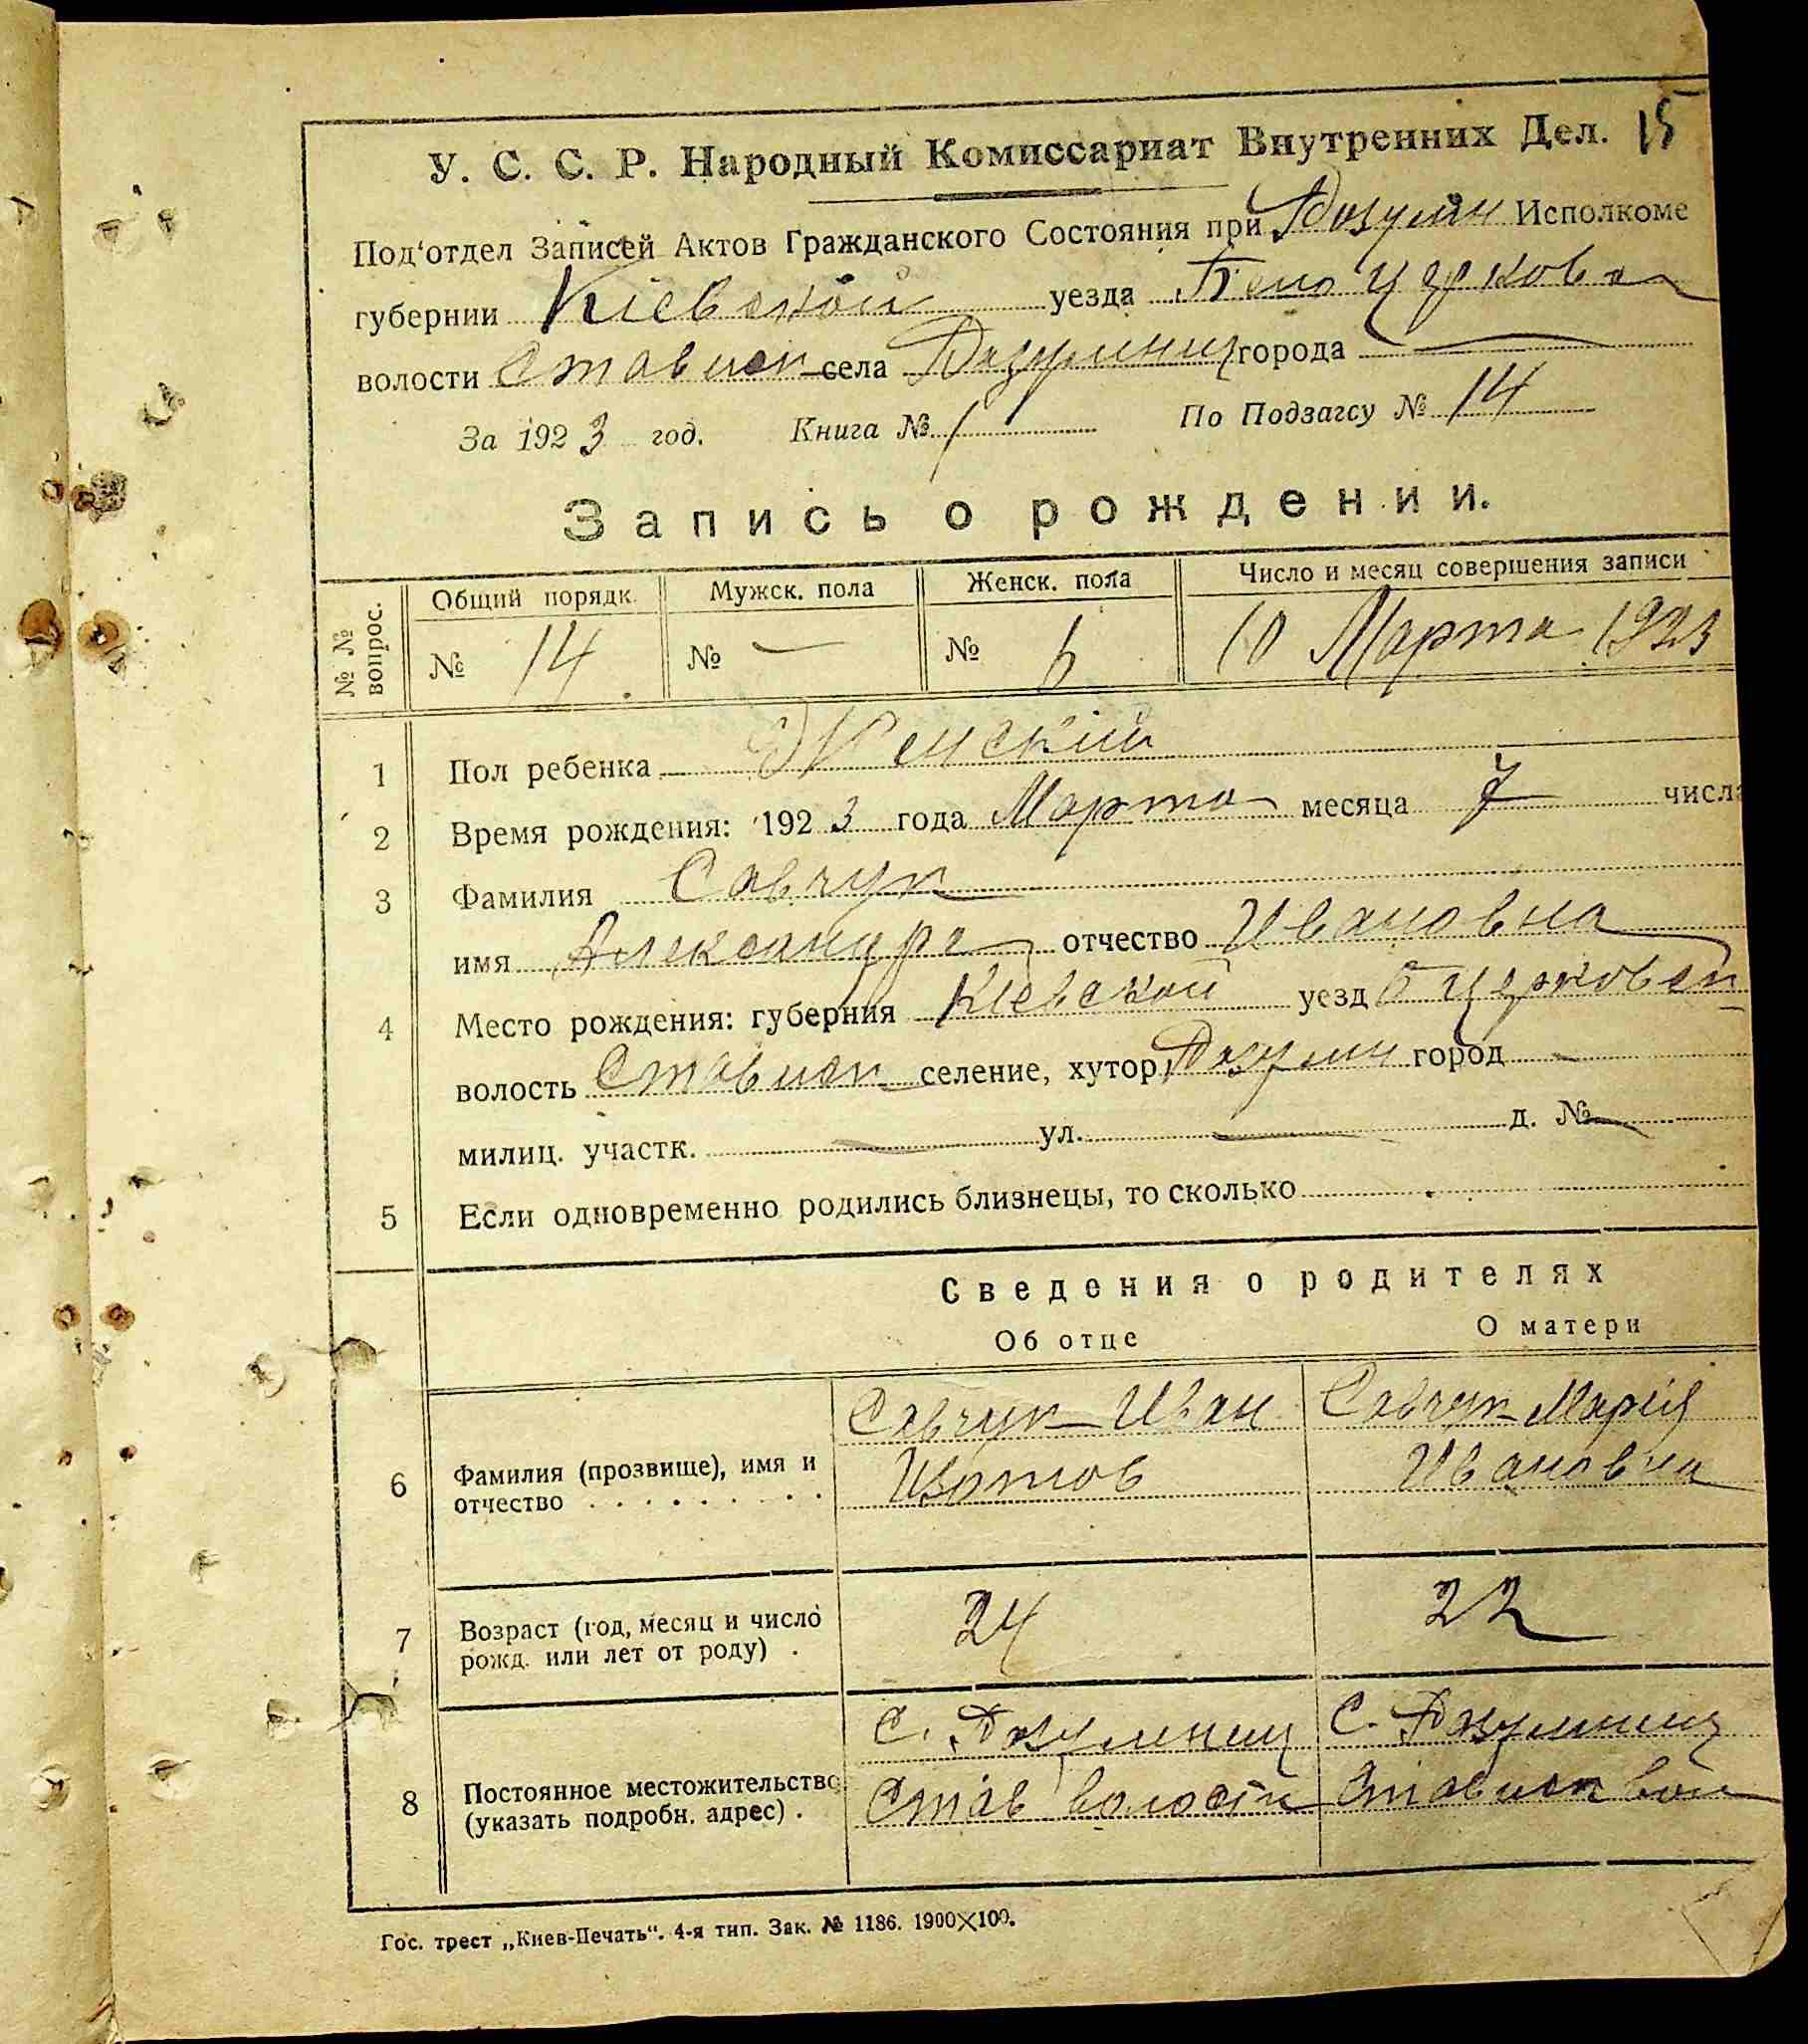 15
У. С. С. Р. Народный Комиссариат Внутренних Дел.
Под'отдел Записей Актов Гражданского Состояния при Розумн Исполкоме
губернии Кіевской уезда Белоцеркова
волости Стависк села города
За 1923 год. Книга № 1 По Подзагсу № 14
Запись о рождении.
№ № вопрос.
Общий порядк. Мужск. пола Женск. пола Число и месяц совершения записи
№ 14 № — № 6 10 Марта 1923
1 Пол ребенка Женскій
2 Время рождения: 1923 года Марта месяца 7 числа
3 Фамилия Савчук
имя Александра отчество Ивановна
4 Место рождения: губерния Кіевской уезд Б Церковск
волость Стависк селение, хутор город —
милиц. участк. — ул. — д. № —
5 Если одновременно родились близнецы, то сколько
Сведения о родителях
Об отце О матери
6 Фамилия (прозвище), имя и отчество
Савчук Иван Изотов
Савчук Марія Ивановна
7 Возраст (год, месяц и число рожд. или лет от роду) .
24 22
8 Постоянное местожительство (указать подробн. адрес) .
С. Став волости
С. Стависк вол
Гос. трест „Киев-Печать“. 4-я тип. Зак. № 1186. 1900×100.